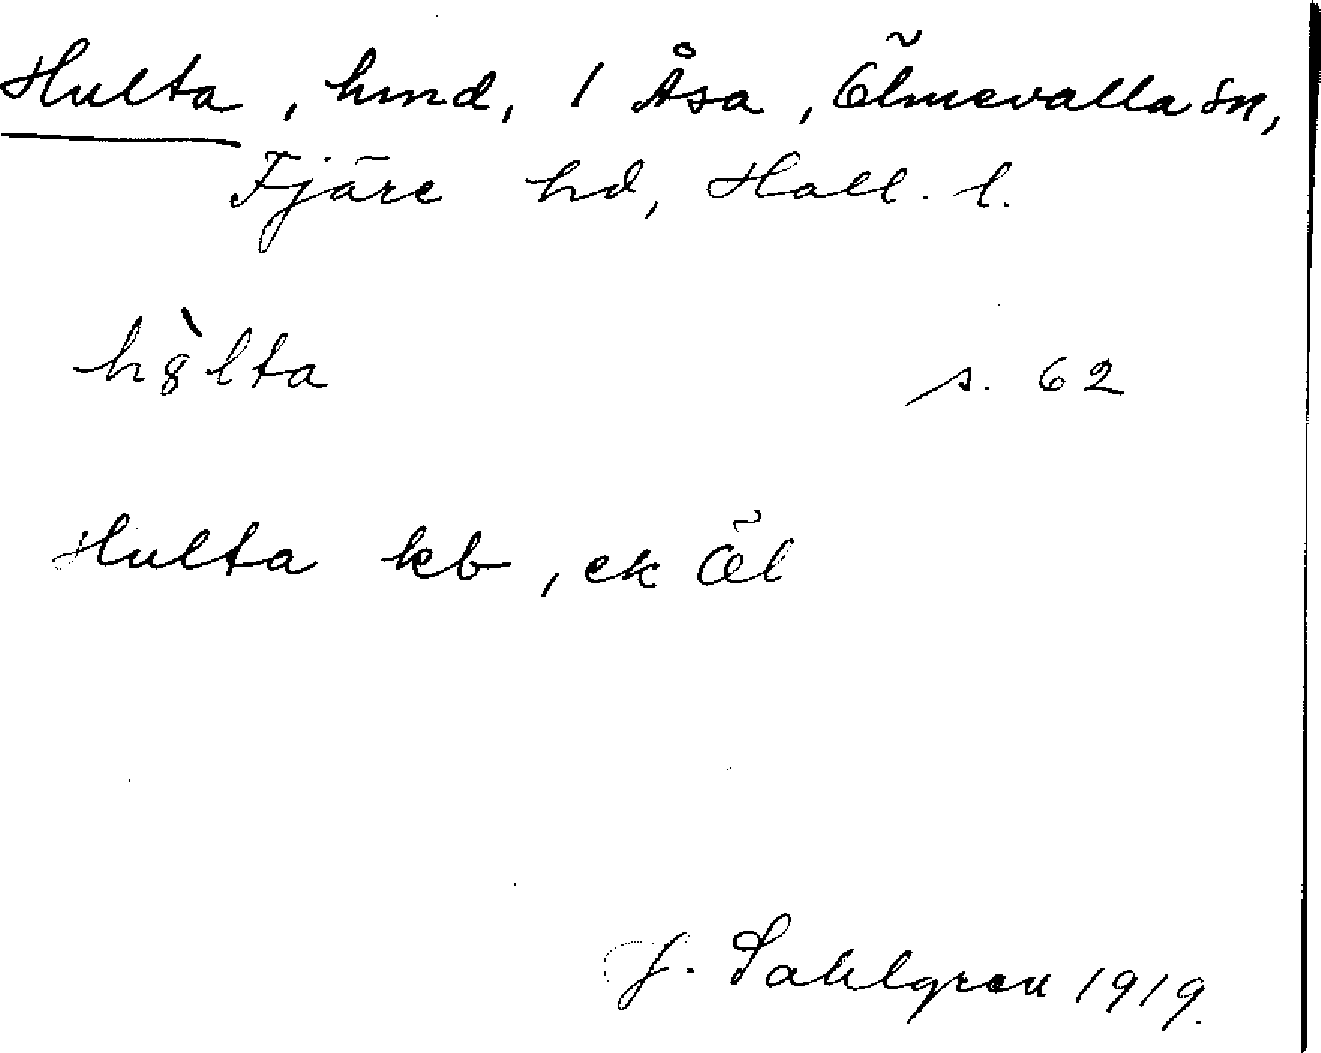 Hulta, hmd, 1 Åsa, Ölmevalla sn,
Fjäre hd, Hall. l.
hȣ̀lta s. 62
Hulta kb, ek Öl
J. Sahlgren 1919.